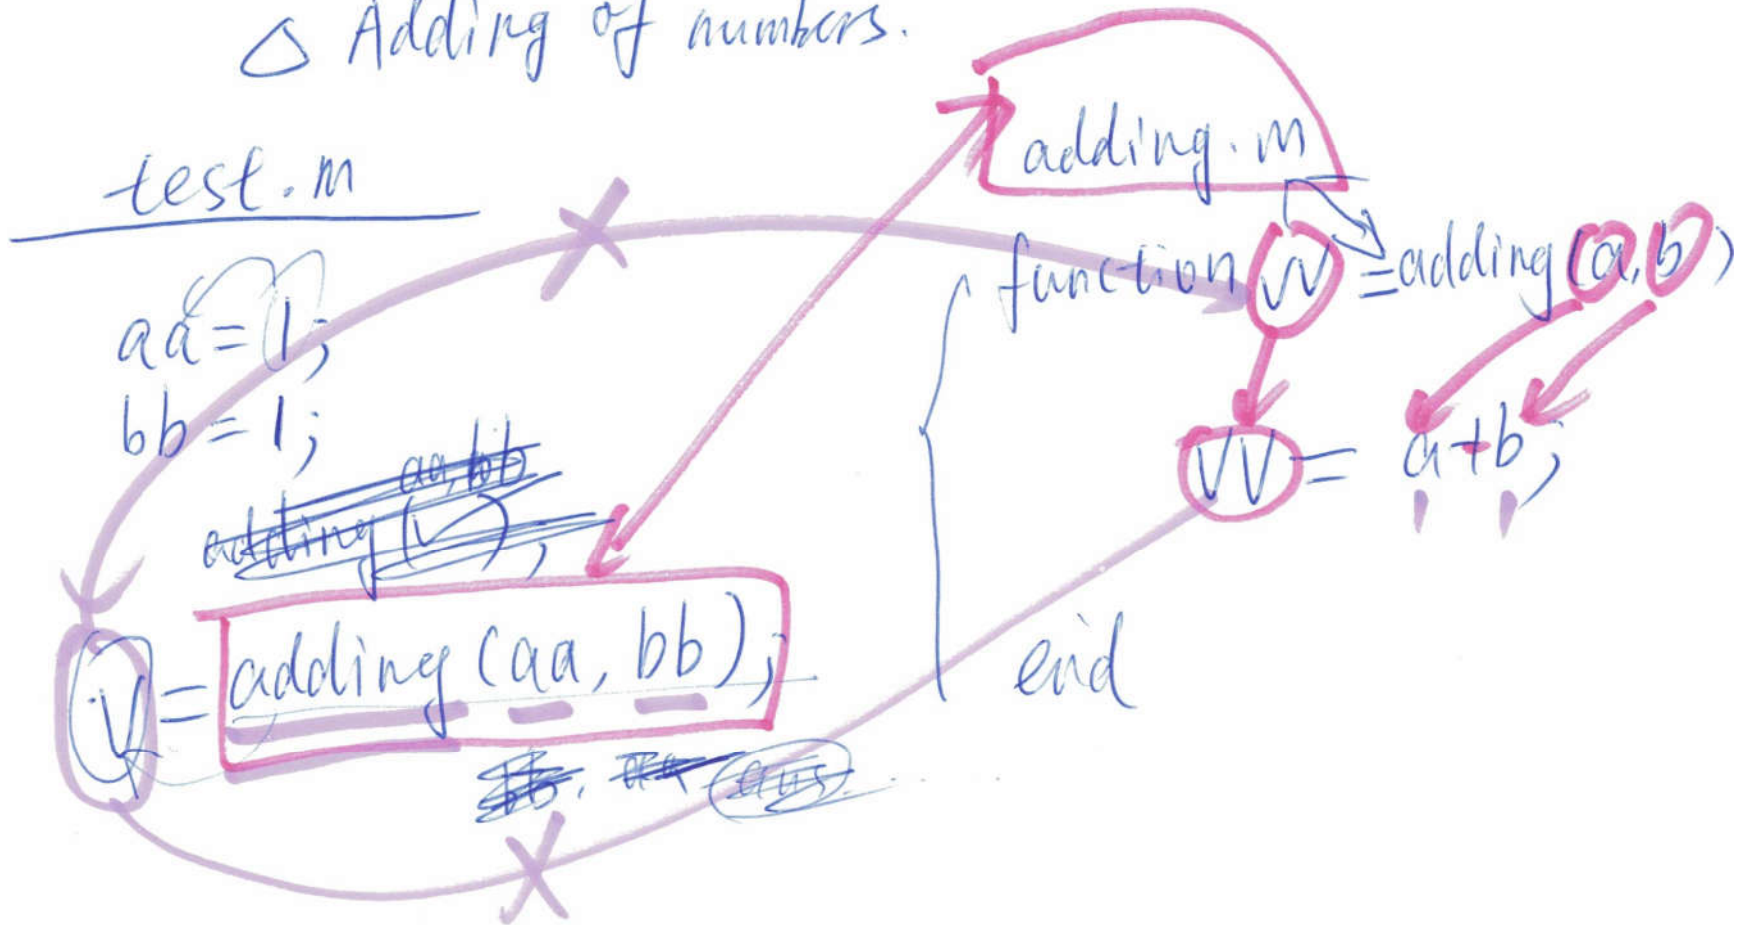 △ Adding of numbers.
test.m
aa=1;
bb=1;
aa,bb
adding( );
V=adding(aa, bb);
bb. aa ans
adding.m
function VV=adding(a,b)
VV= a+b;
end